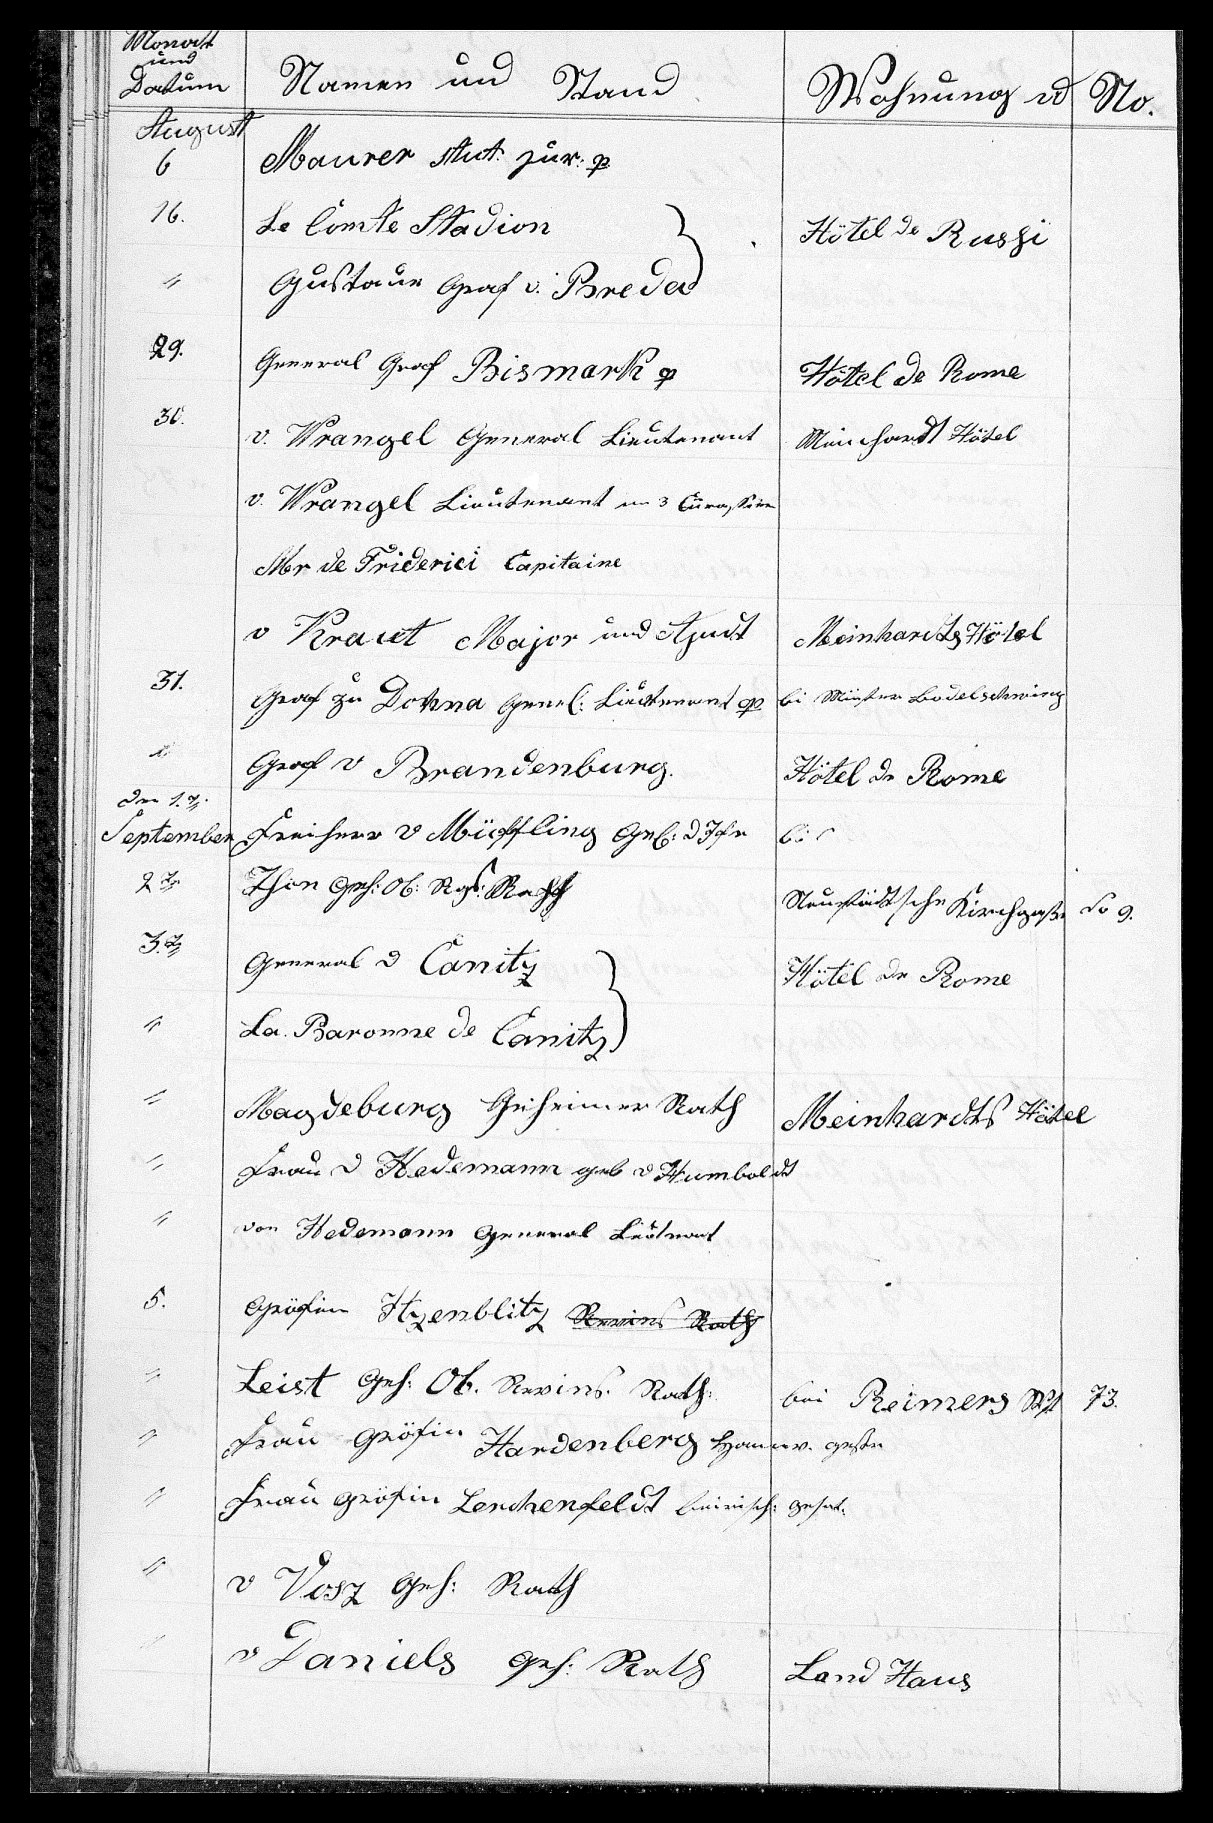 Monat und Datum Namen und Stand Wohnung u No.
August
6 Maurer stut: jur: p
16. Le Comte Stadion Hôtel de Russi
" Gustave Graf v. Breda
29. General Graf Bismark p Hôtel de Rome
30. v. Wrangel General Lieutenant Meinhardt Hôtel
v. Wrangel Lieutenant im 3 Cürassier
Mr de Friderici Capitaine
v Kraut Major und Ajudt Meinhardts Hôtel
31. Graf zu Dohna Genel: Lieutenant p bei Minster Bodelschwing
" Graf v Brandenburg. Hôtel de Rome
den 1.t
September Freiherr v Müffling
2t Thon Geh: Ob: Rath Neustädtsche Kirchgasse No 9.
3.t General v Canitz Hôtel de Rome
" La Baronne de Canitz
" Magdeburg Geheimer Rath Meinhardts Hôtel
" Frau v Hedemann geb v Humboldt
" von Hedemann General Lieutnant
5. Gräfin Itzenblitz Revins Rath
" Leist Geh: Ob. Revins. Rath: bei Reimers 73.
" Frau Gräfin Hardenberg Hannov. geste
" Frau Gräfin Lerchenfeldt bairisch: gesat:
" v Vosz Geh: Rath
" v Daniels Geh: Rath Land Haus